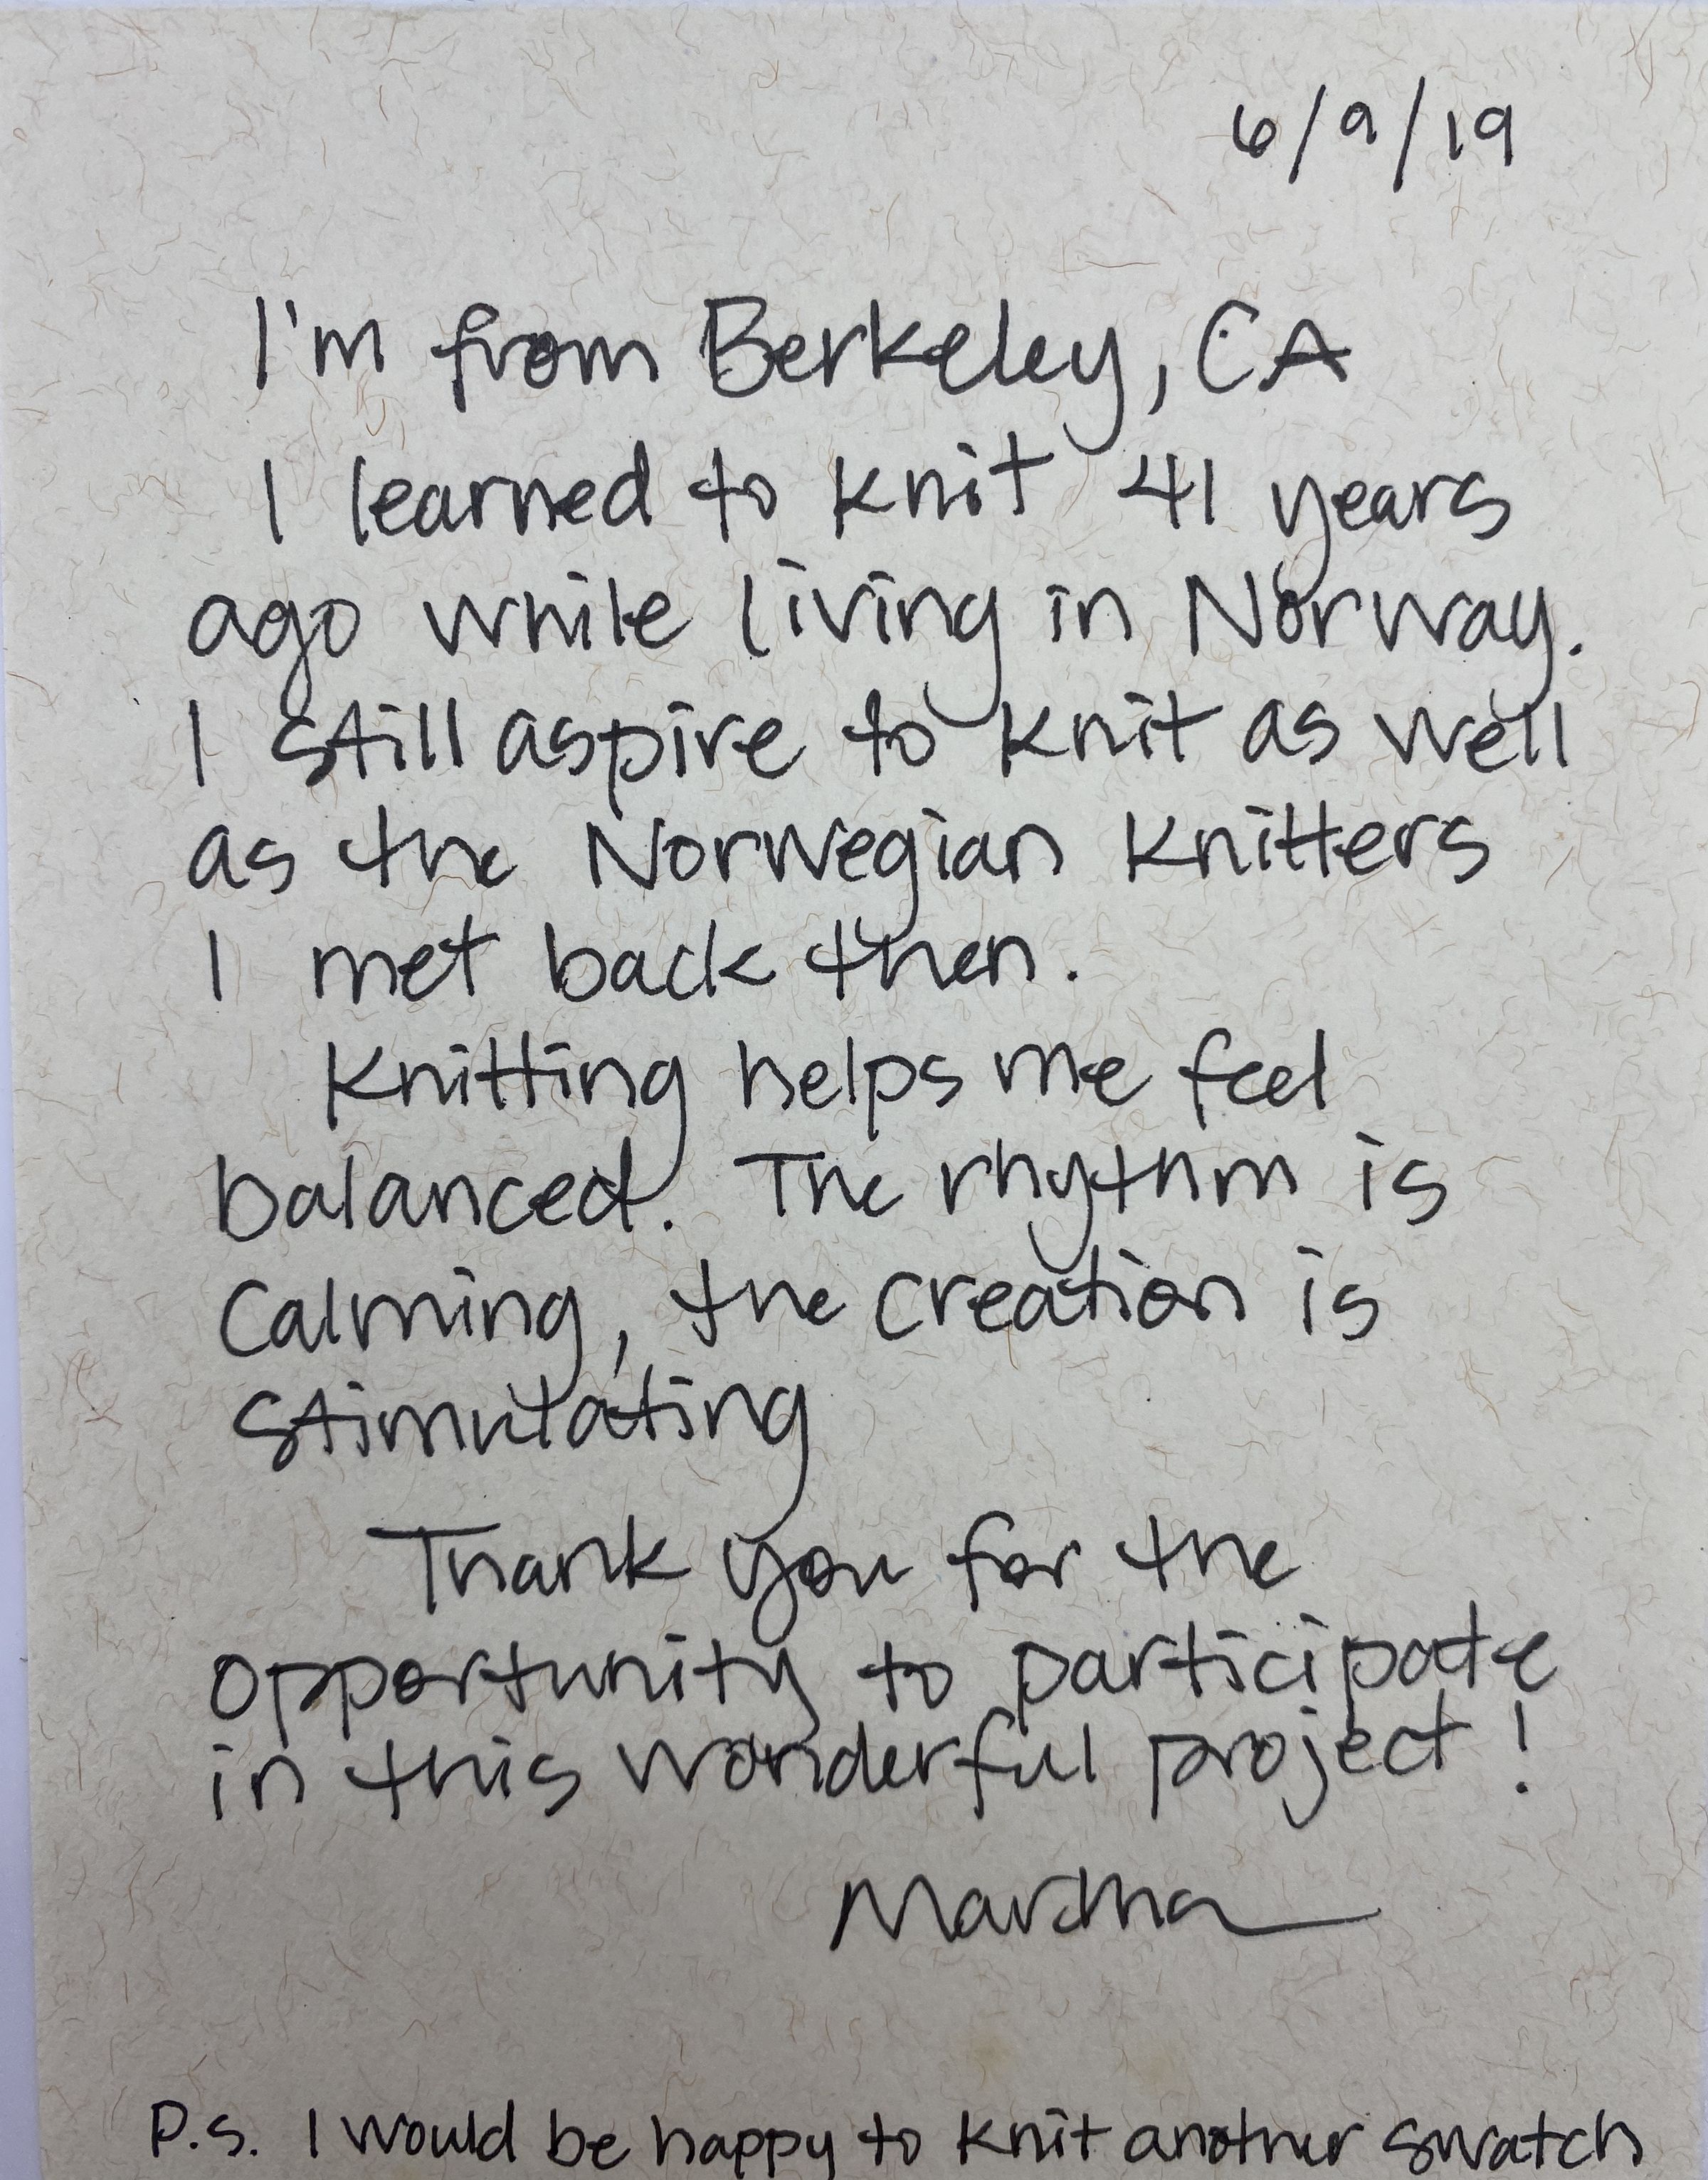 6/9/19
I'm from Berkeley, CA
I learned to knit 41 years
ago while living in Norway.
I still aspire to knit as well
as the Norwegian knitters
I met back then.
Knitting helps me feel
balanced. The rhythm is
calming, the creation is
stimulating
Thank you for the
opportunity to participate
in this wonderful project!
Martha
P.S. I would be happy to knit another swatch